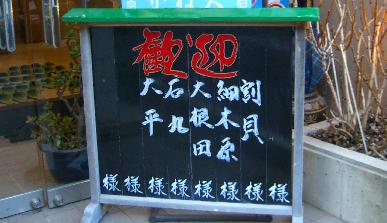 歓迎
割貝様
細木原様
大根田様
石丸様
大平様
様
様
様